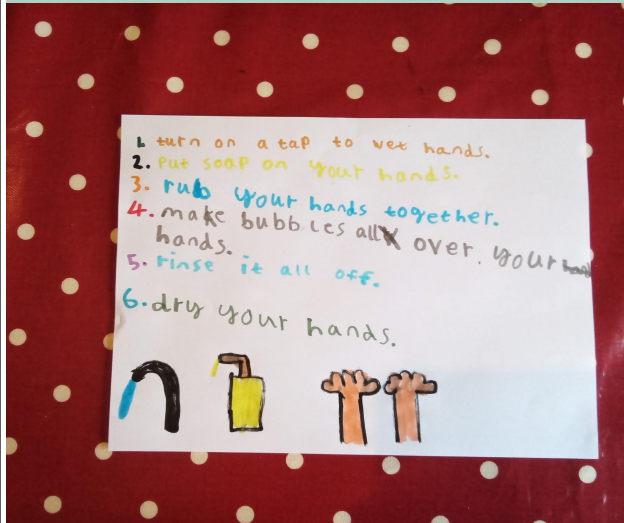 1. turn on a tap to wet hands.
2. Put soap on your hands.
3. rub your hands together.
4. make bubbles all over. your
hands.
5. rinse it all off.
6. dry your hands.